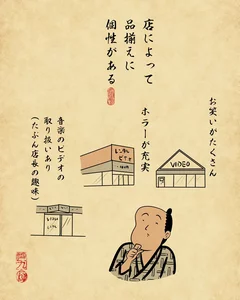 店によって
品揃えに
個性がある
お笑いがたくさん
ホラーが充実
音楽のビデオの
取り扱いあり
(たぶん店長の趣味)
レンタル
ビデオ
VIDEO